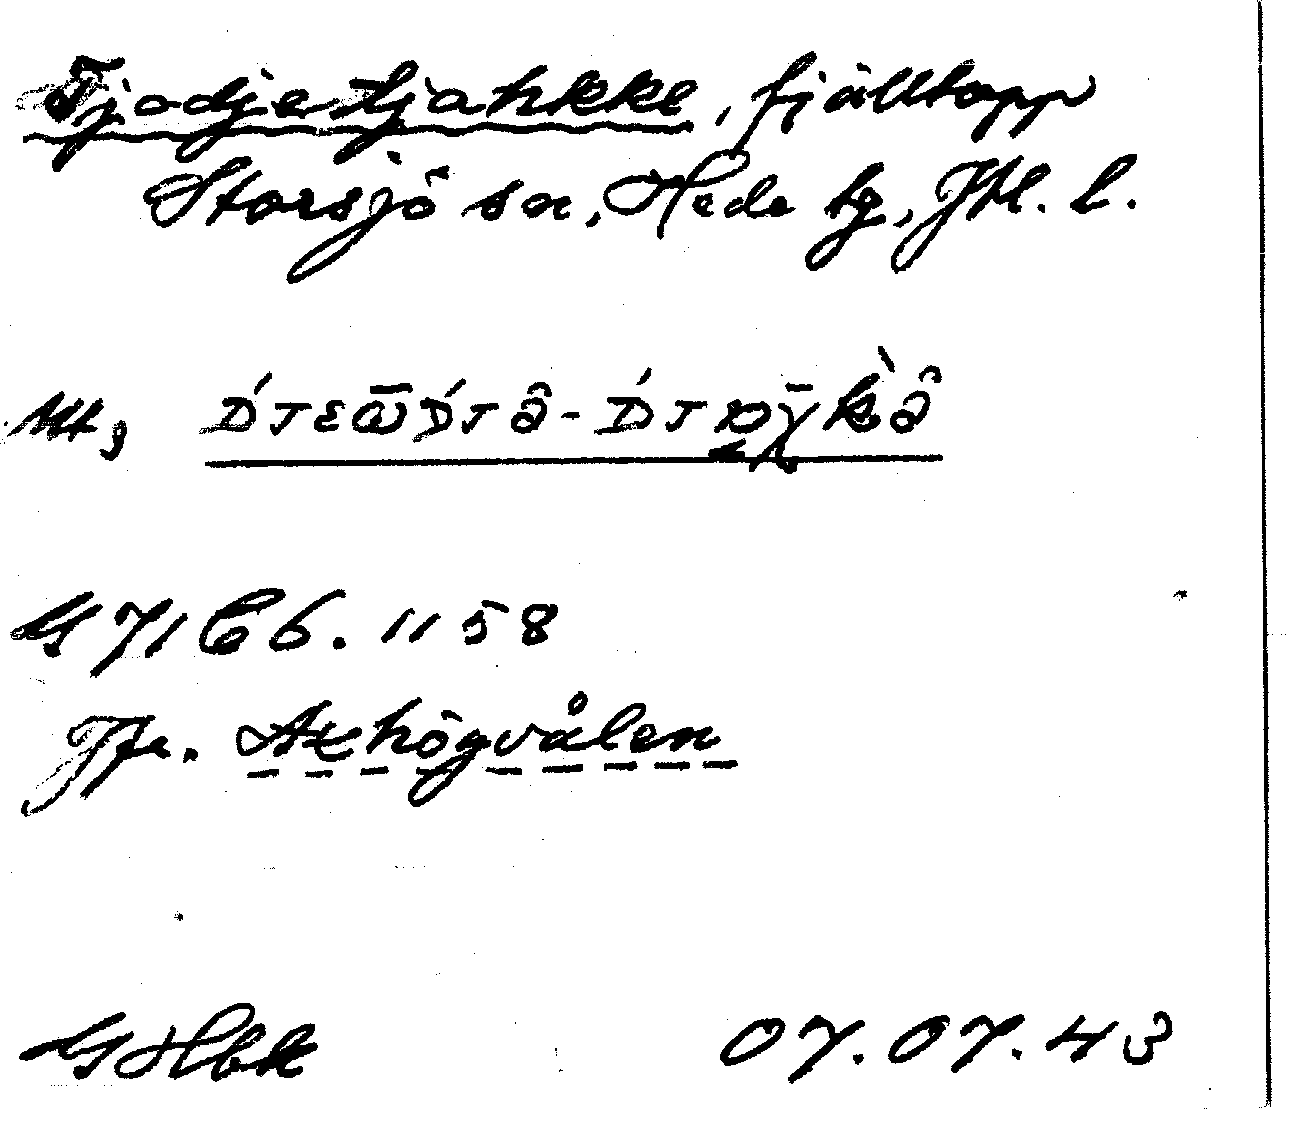 Tjodjetjahkke, fjälltopp
Storsjö sn, Hede tg, Jtl. l.
Utt,
G 71 C 6. 11 58
Jfr. Axhögvålen
07.07.43